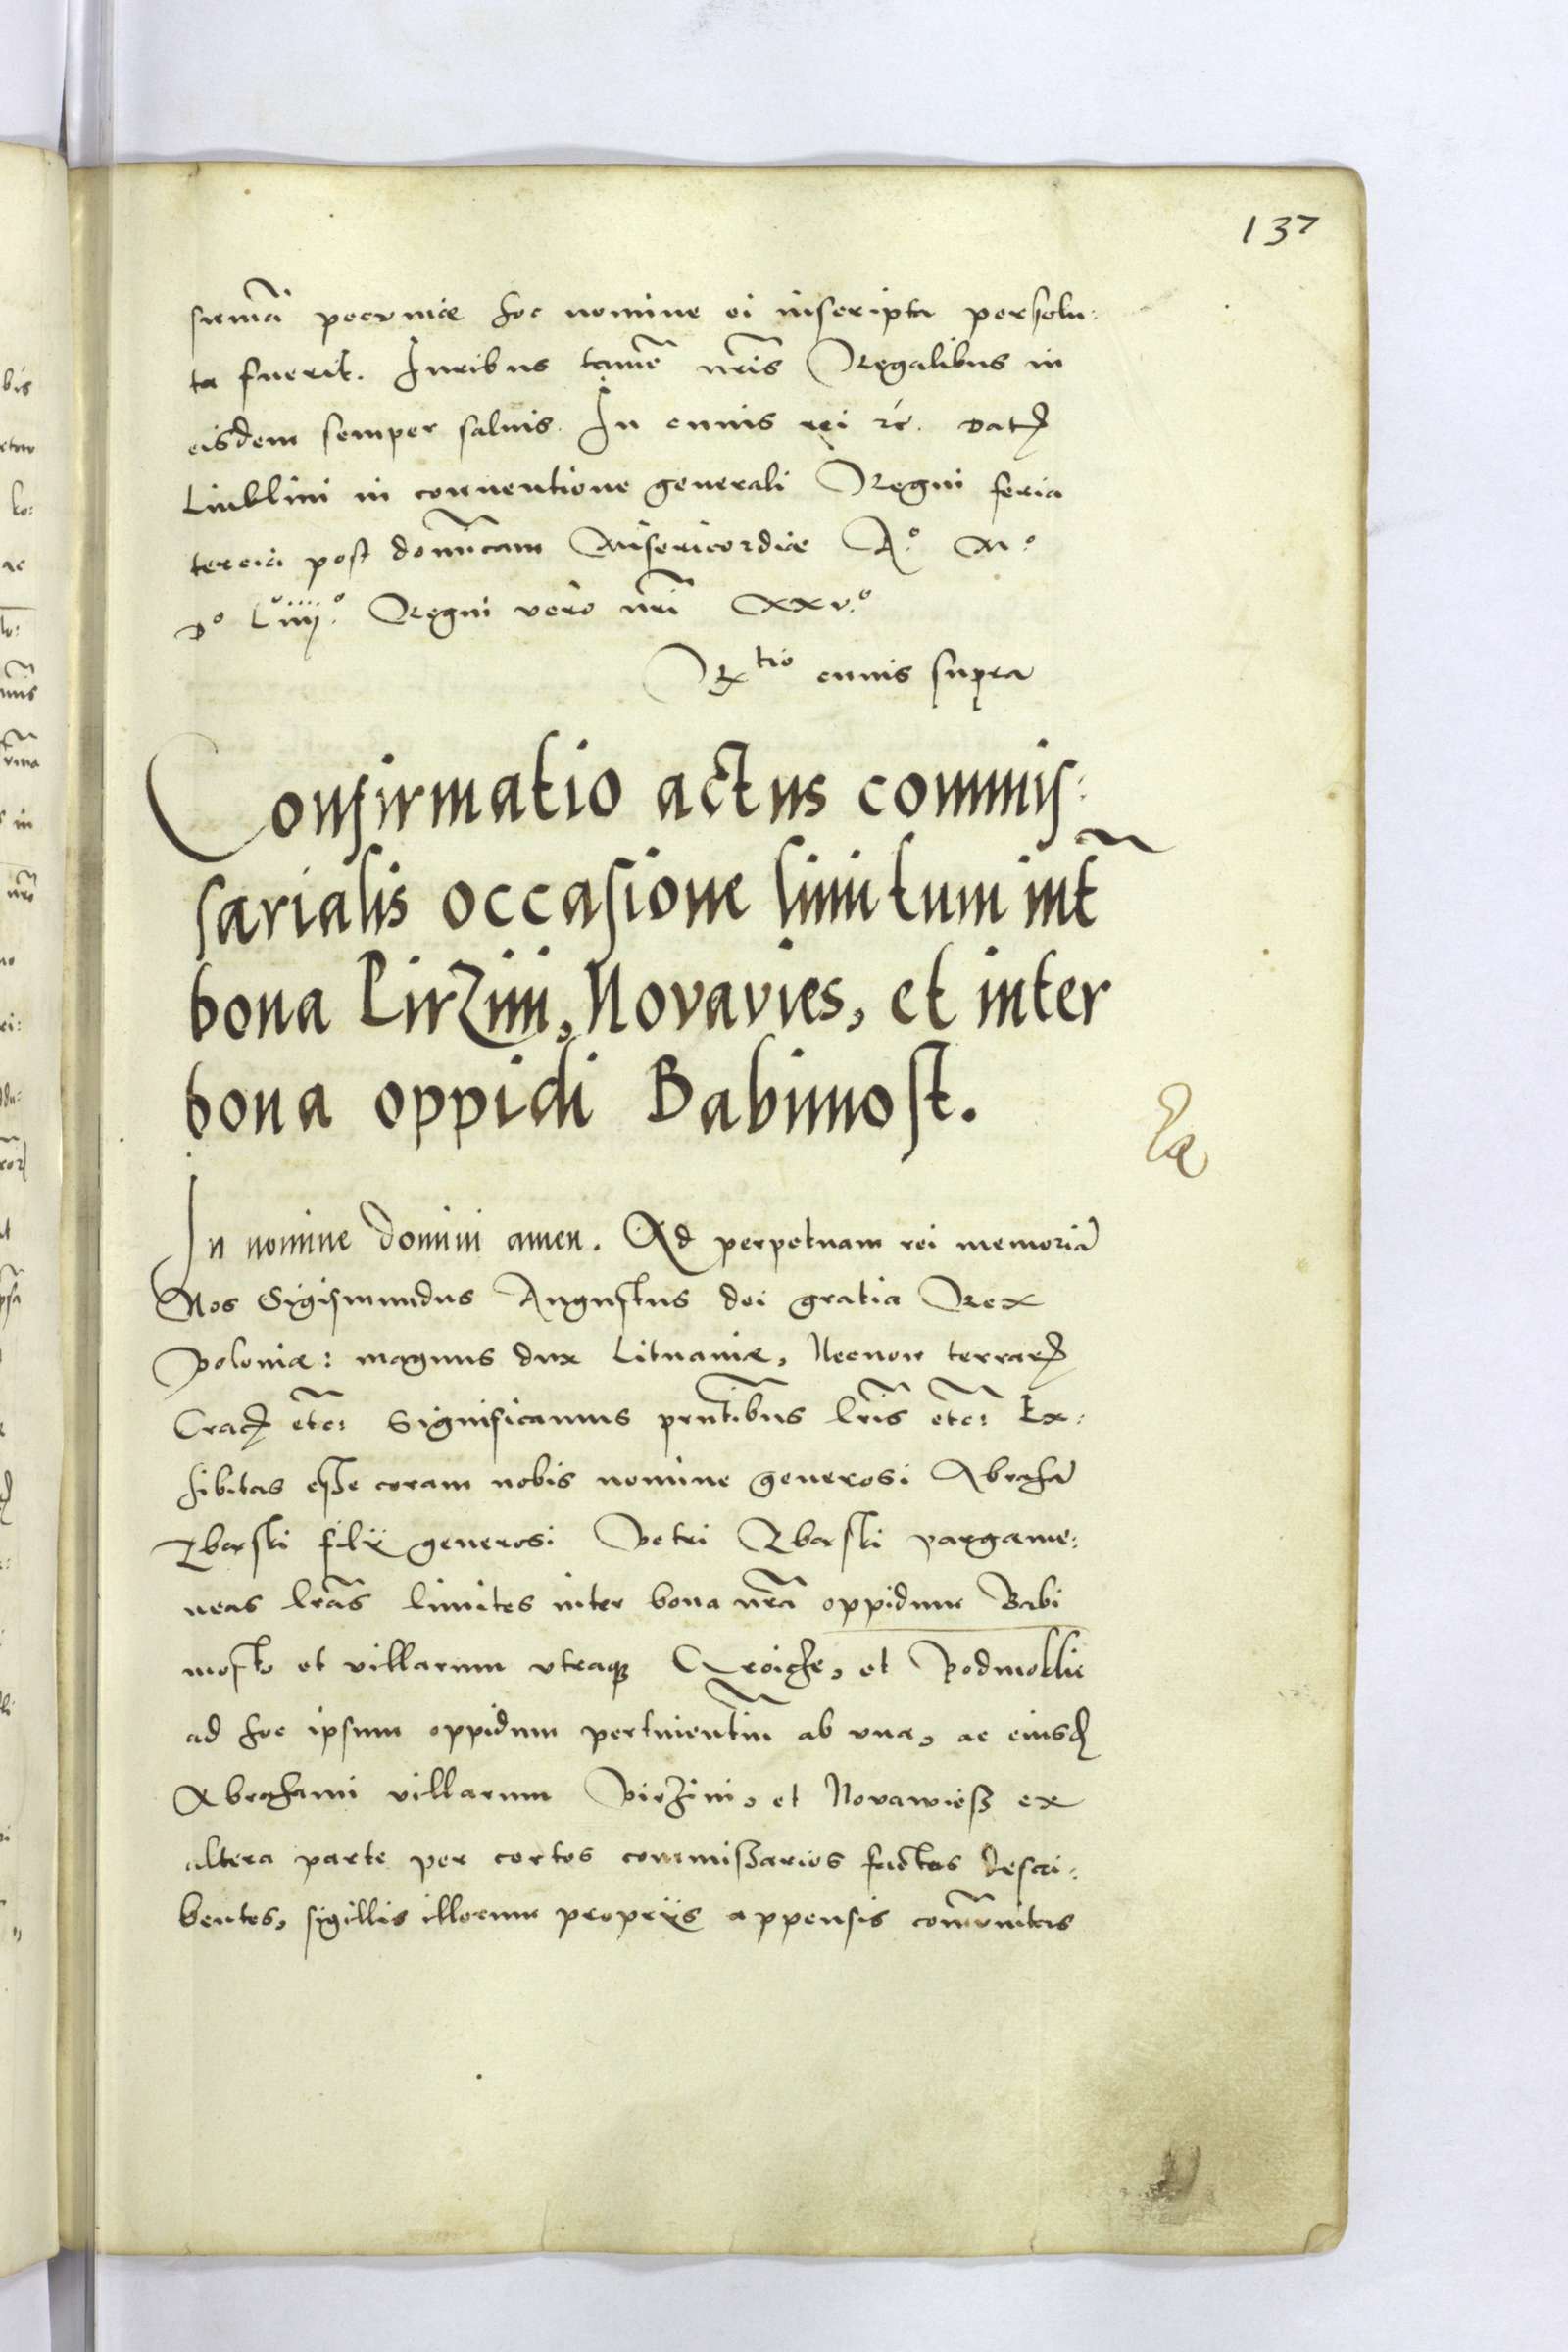 137
sumã pecuniæ hoc nomine ei inscripta persolu:
ta fuerit. Iuribus tamẽ nr̃is Regalibus in
eisdem semper saluis. In cuuis rei rc̃. Datꝭ
Liublini in conventione generali Regni feria
tercia post domĩcam Misericordiæ A.º M.º
D.º Liiij.º Regni vero nr̃i xxv.º
R tio cuuis supra
Confirmatio actus commis:
sarialis occasione limitum int̃
bona Pirzim, Novavies, et inter
bona oppidi Babimost.
In nomine Domini amen. Ad perpetuam rei memoriã
Nos Sigismundus Augustus dei gratia Rex
Poloniæ: magnus dux Lituaniæ, Necnon terrarꝭ
Cracꝭ etc̃: Significamus prñtibus lr̃is etc̃: Ex:
hibitas esse coram nobis nomine generosi Abrahã
Zbaski filij generosi Petri Zbaski pargame:
neas lr̃as limites inter bona nr̃a oppidum Babi
mosto et villarum vtraqꝫ Croicze, et Podmoklie
ad hoc ipsum oppidum pertinentiũ ab vna, ac eiusdꝭ
Abrahami villarum Pirzim, et Novawiess ex
altera parte per certos commissarios factos descri:
bentes, sigillis illorum proprijs appensis com̃unitas